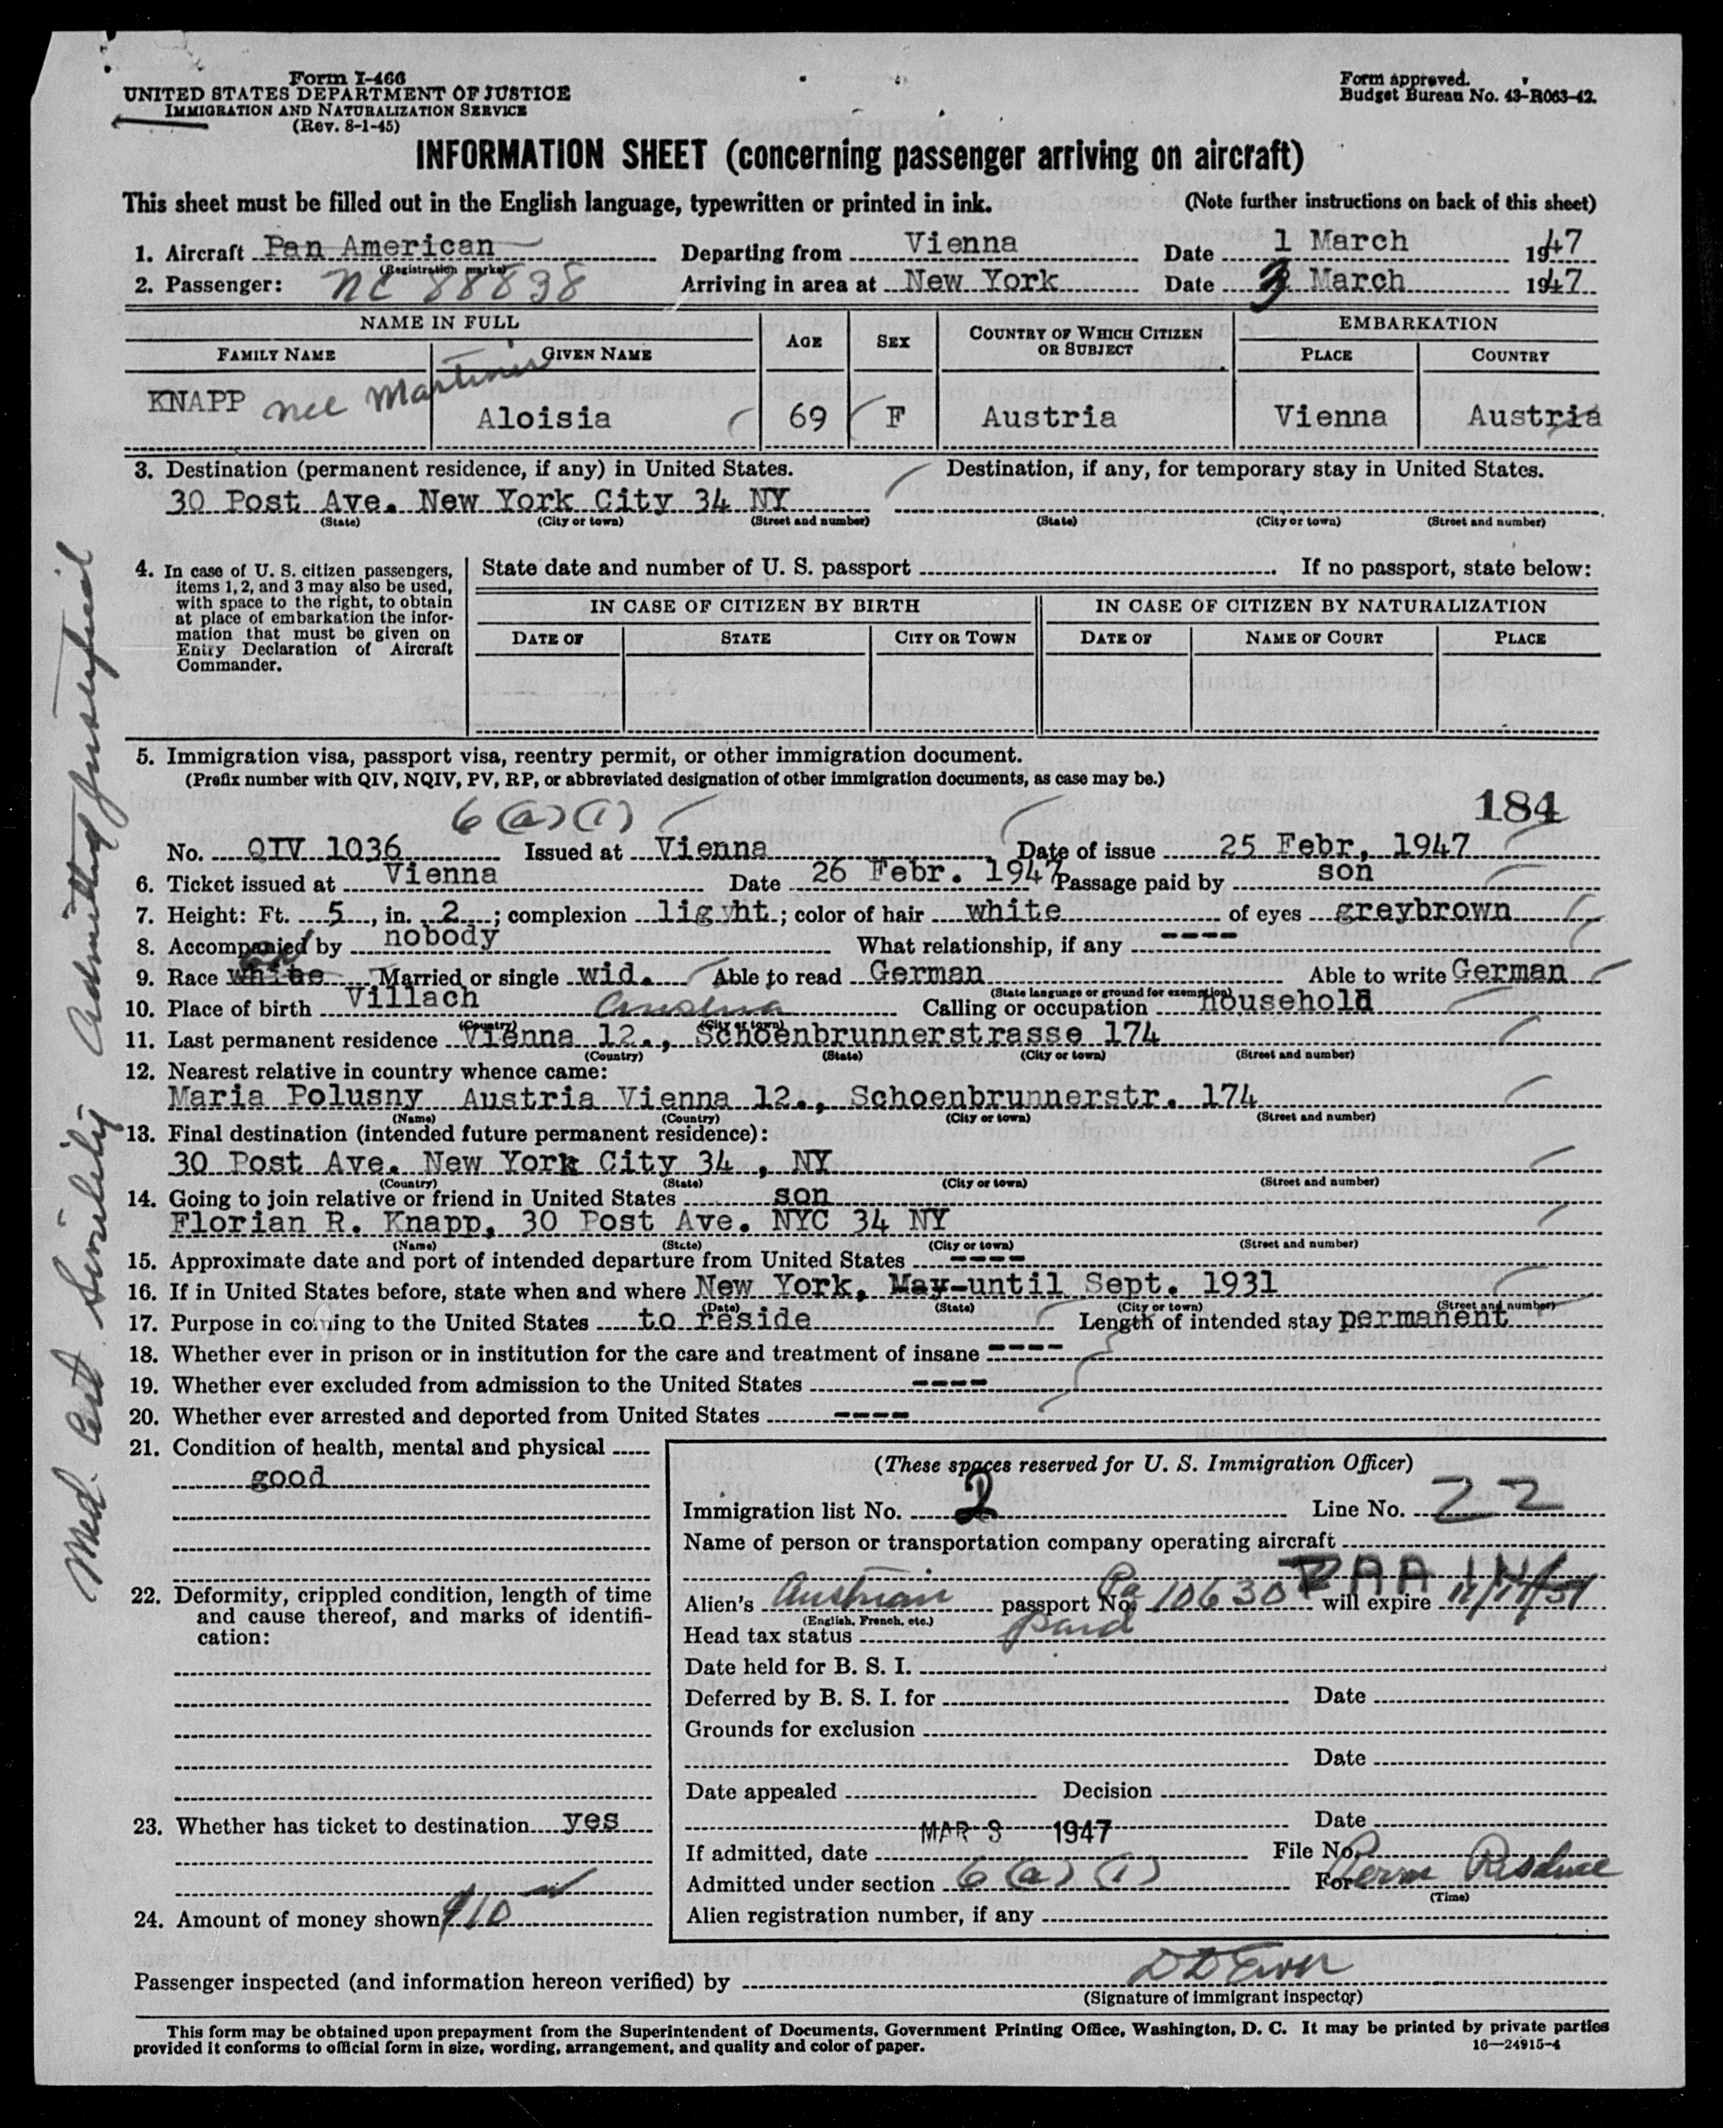 Form I-466
UNITED STATES DEPARTMENT OF JUSTICE
IMMIGRATION AND NATURALIZATION SERVICE
(Rev. 8-1-45)
Form approved.
Budget Bureau No. 43-R063-42.
INFORMATION SHEET (concerning passenger arriving on aircraft)
This sheet must be filled out in the English language, typewritten or printed in ink. (Note further instructions on back of this sheet)
1. Aircraft Pan American Departing from Vienna Date 1 March 1947
(Registration marks)
2. Passenger: NC 88838 Arriving in area at New York Date 3 March 1947
NAME IN FULL AGE SEX COUNTRY OF WHICH CITIZEN OR SUBJECT EMBARKATION
FAMILY NAME GIVEN NAME PLACE COUNTRY
KNAPP nee Aloisia 69 F Austria Vienna Austria
3. Destination (permanent residence, if any) in United States. Destination, if any, for temporary stay in United States.
30 Post Ave. New York City 34 NY
(State) (City or town) (Street and number) (State) (City or town) (Street and number)
4. In case of U. S. citizen passengers, items 1, 2, and 3 may also be used, with space to the right, to obtain at place of embarkation the information that must be given on Entry Declaration of Aircraft Commander.
State date and number of U. S. passport If no passport, state below:
IN CASE OF CITIZEN BY BIRTH IN CASE OF CITIZEN BY NATURALIZATION
DATE OF STATE CITY OR TOWN DATE OF NAME OF COURT PLACE
5. Immigration visa, passport visa, reentry permit, or other immigration document.
(Prefix number with QIV, NQIV, PV, RP, or abbreviated designation of other immigration documents, as case may be.)
6(a)(1) 184
No. QIV 1036 Issued at Vienna Date of issue 25 Febr, 1947
6. Ticket issued at Vienna Date 26 Febr. 1947 Passage paid by son
7. Height: Ft. 5, in. 2; complexion light; color of hair white of eyes greybrown
8. Accompanied by nobody What relationship, if any ----
9. Race white Married or single wid. Able to read German Able to write German
(State language or ground for exemption)
10. Place of birth Villach Austria Calling or occupation household
(Country) (City or town)
11. Last permanent residence Vienna 12., Schoenbrunnerstrasse 174
(Country) (State) (City or town) (Street and number)
12. Nearest relative in country whence came:
Maria Polusny Austria Vienna 12., Schoenbrunnerstr. 174
(Name) (Country) (City or town) (Street and number)
13. Final destination (intended future permanent residence):
30 Post Ave. New York City 34 , NY
(Country) (State) (City or town) (Street and number)
14. Going to join relative or friend in United States son
Florian R. Knapp, 30 Post Ave. NYC 34 NY
(Name) (State) (City or town) (Street and number)
15. Approximate date and port of intended departure from United States ----
16. If in United States before, state when and where New York, May-until Sept. 1931
(Date) (State) (City or town) (Street and number)
17. Purpose in coming to the United States to reside Length of intended stay permanent
18. Whether ever in prison or in institution for the care and treatment of insane ----
19. Whether ever excluded from admission to the United States ----
20. Whether ever arrested and deported from United States ----
21. Condition of health, mental and physical
good
22. Deformity, crippled condition, length of time and cause thereof, and marks of identification:
23. Whether has ticket to destination yes
24. Amount of money shown $10
(These spaces reserved for U. S. Immigration Officer)
Immigration list No. 2 Line No. 22
Name of person or transportation company operating aircraft
PAA
Alien's Austrian passport No. 10630 will expire
(English, French, etc.)
Head tax status paid
Date held for B. S. I.
Deferred by B. S. I. for Date
Grounds for exclusion
Date
Date appealed Decision
Date
MAR 3 1947
If admitted, date File No.
Admitted under section 6(a)(1) For Perm Residence
(Time)
Alien registration number, if any
Passenger inspected (and information hereon verified) by
(Signature of immigrant inspector)
This form may be obtained upon prepayment from the Superintendent of Documents, Government Printing Office, Washington, D. C. It may be printed by private parties
provided it conforms to official form in size, wording, arrangement, and quality and color of paper. 16—24915-4
Med. Cert Senility Admitted